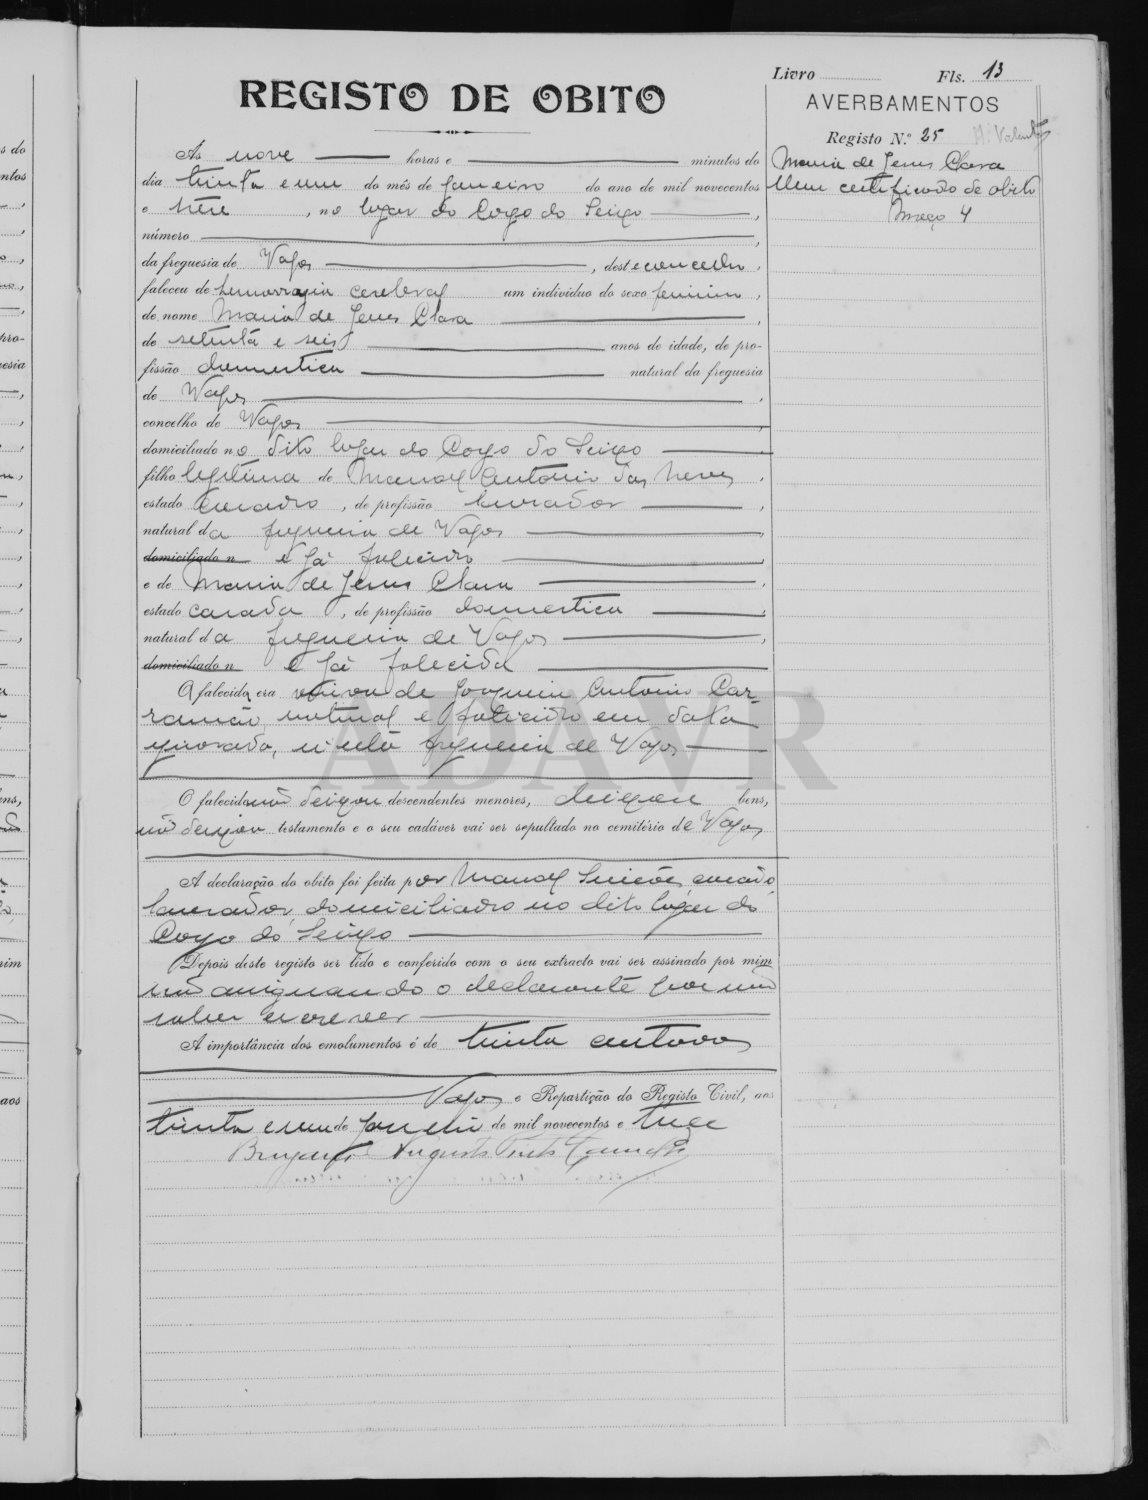 Livro Fls. 13
REGISTO DE OBITO
AVERBAMENTOS
Registo N.º 25
Maria de Jesus Clara
Um certificado de obito
Março 4
As nove horas e minutos do
dia trinta e um do mês de Janeiro do ano de mil novecentos
e treze, no lugar do Corgo do Seixo,
número,
da freguesia de Vagos, deste concelho,
faleceu de hemorragia cerebral um individuo do sexo feminino,
de nome Maria de Jesus Clara,
de setenta e seis anos de idade, de pro-
fissão domestica natural da freguesia
de Vagos,
concelho de Vagos,
domiciliado no dito lugar do Corgo do Seixo,
filho legitima de Manoel Antonio das Neves,
estado casado, de profissão lavrador,
natural da freguesia de Vagos,
domiciliado n e já falecido
e de Maria de Jesus Clara,
estado casada, de profissão domestica,
natural da freguesia de Vagos,
domiciliado n e já falecida
A falecida era viuva de Joaquim Antonio Car-
ramão, natural e falecido em data
ignorada, n'esta freguesia de Vagos
O falecido não deixou descendentes menores, deixou bens,
não deixou testamento e o seu cadáver vai ser sepultado no cemitério de Vagos
A declaração do obito foi feita por Manoel Simões, casado,
lavrador, domiciliado no dito lugar do
Corgo do Seixo
Depois deste registo ser lido e conferido com o seu extracto vai ser assinado por mim
não assignando o declarante por não
saber escrever
A importância dos emolumentos é de trinta centavos
Vagos e Repartição do Registo Civil, aos
trinta e um de Janeiro de mil novecentos e treze
Augusto
ADAVR